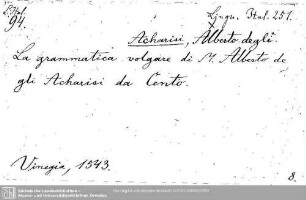 L. Ital.
94.
Lingu. Ital. 251.
Acharisi, Alberto degli.
La grammatica volgare di M. Alberto de
gli Acharisi da Cento.
Vinegia, 1543.
8.
Sächsische Landesbibliothek -
Staats- und Universitätsbibliothek Dresden